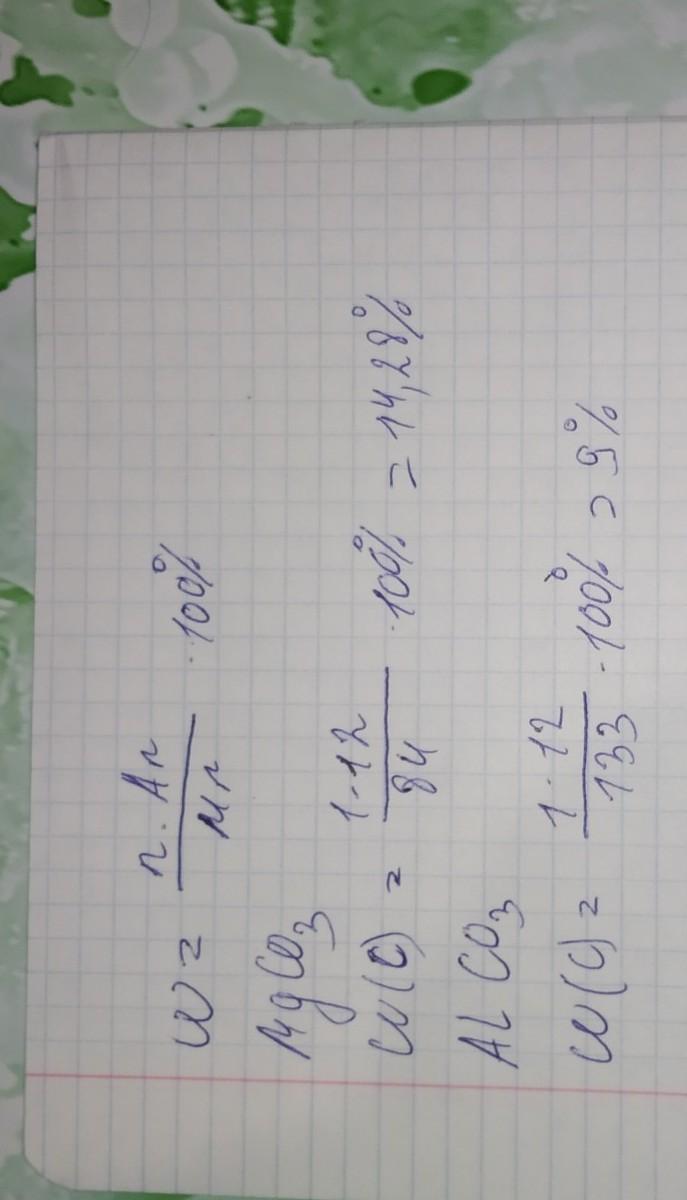 W = n · Ar / Mr · 100%
MgCO3
W(C) = 1·12 / 84 · 100% = 14,28%
AlCO3
W(C) = 1·12 / 133 · 100% = 9%